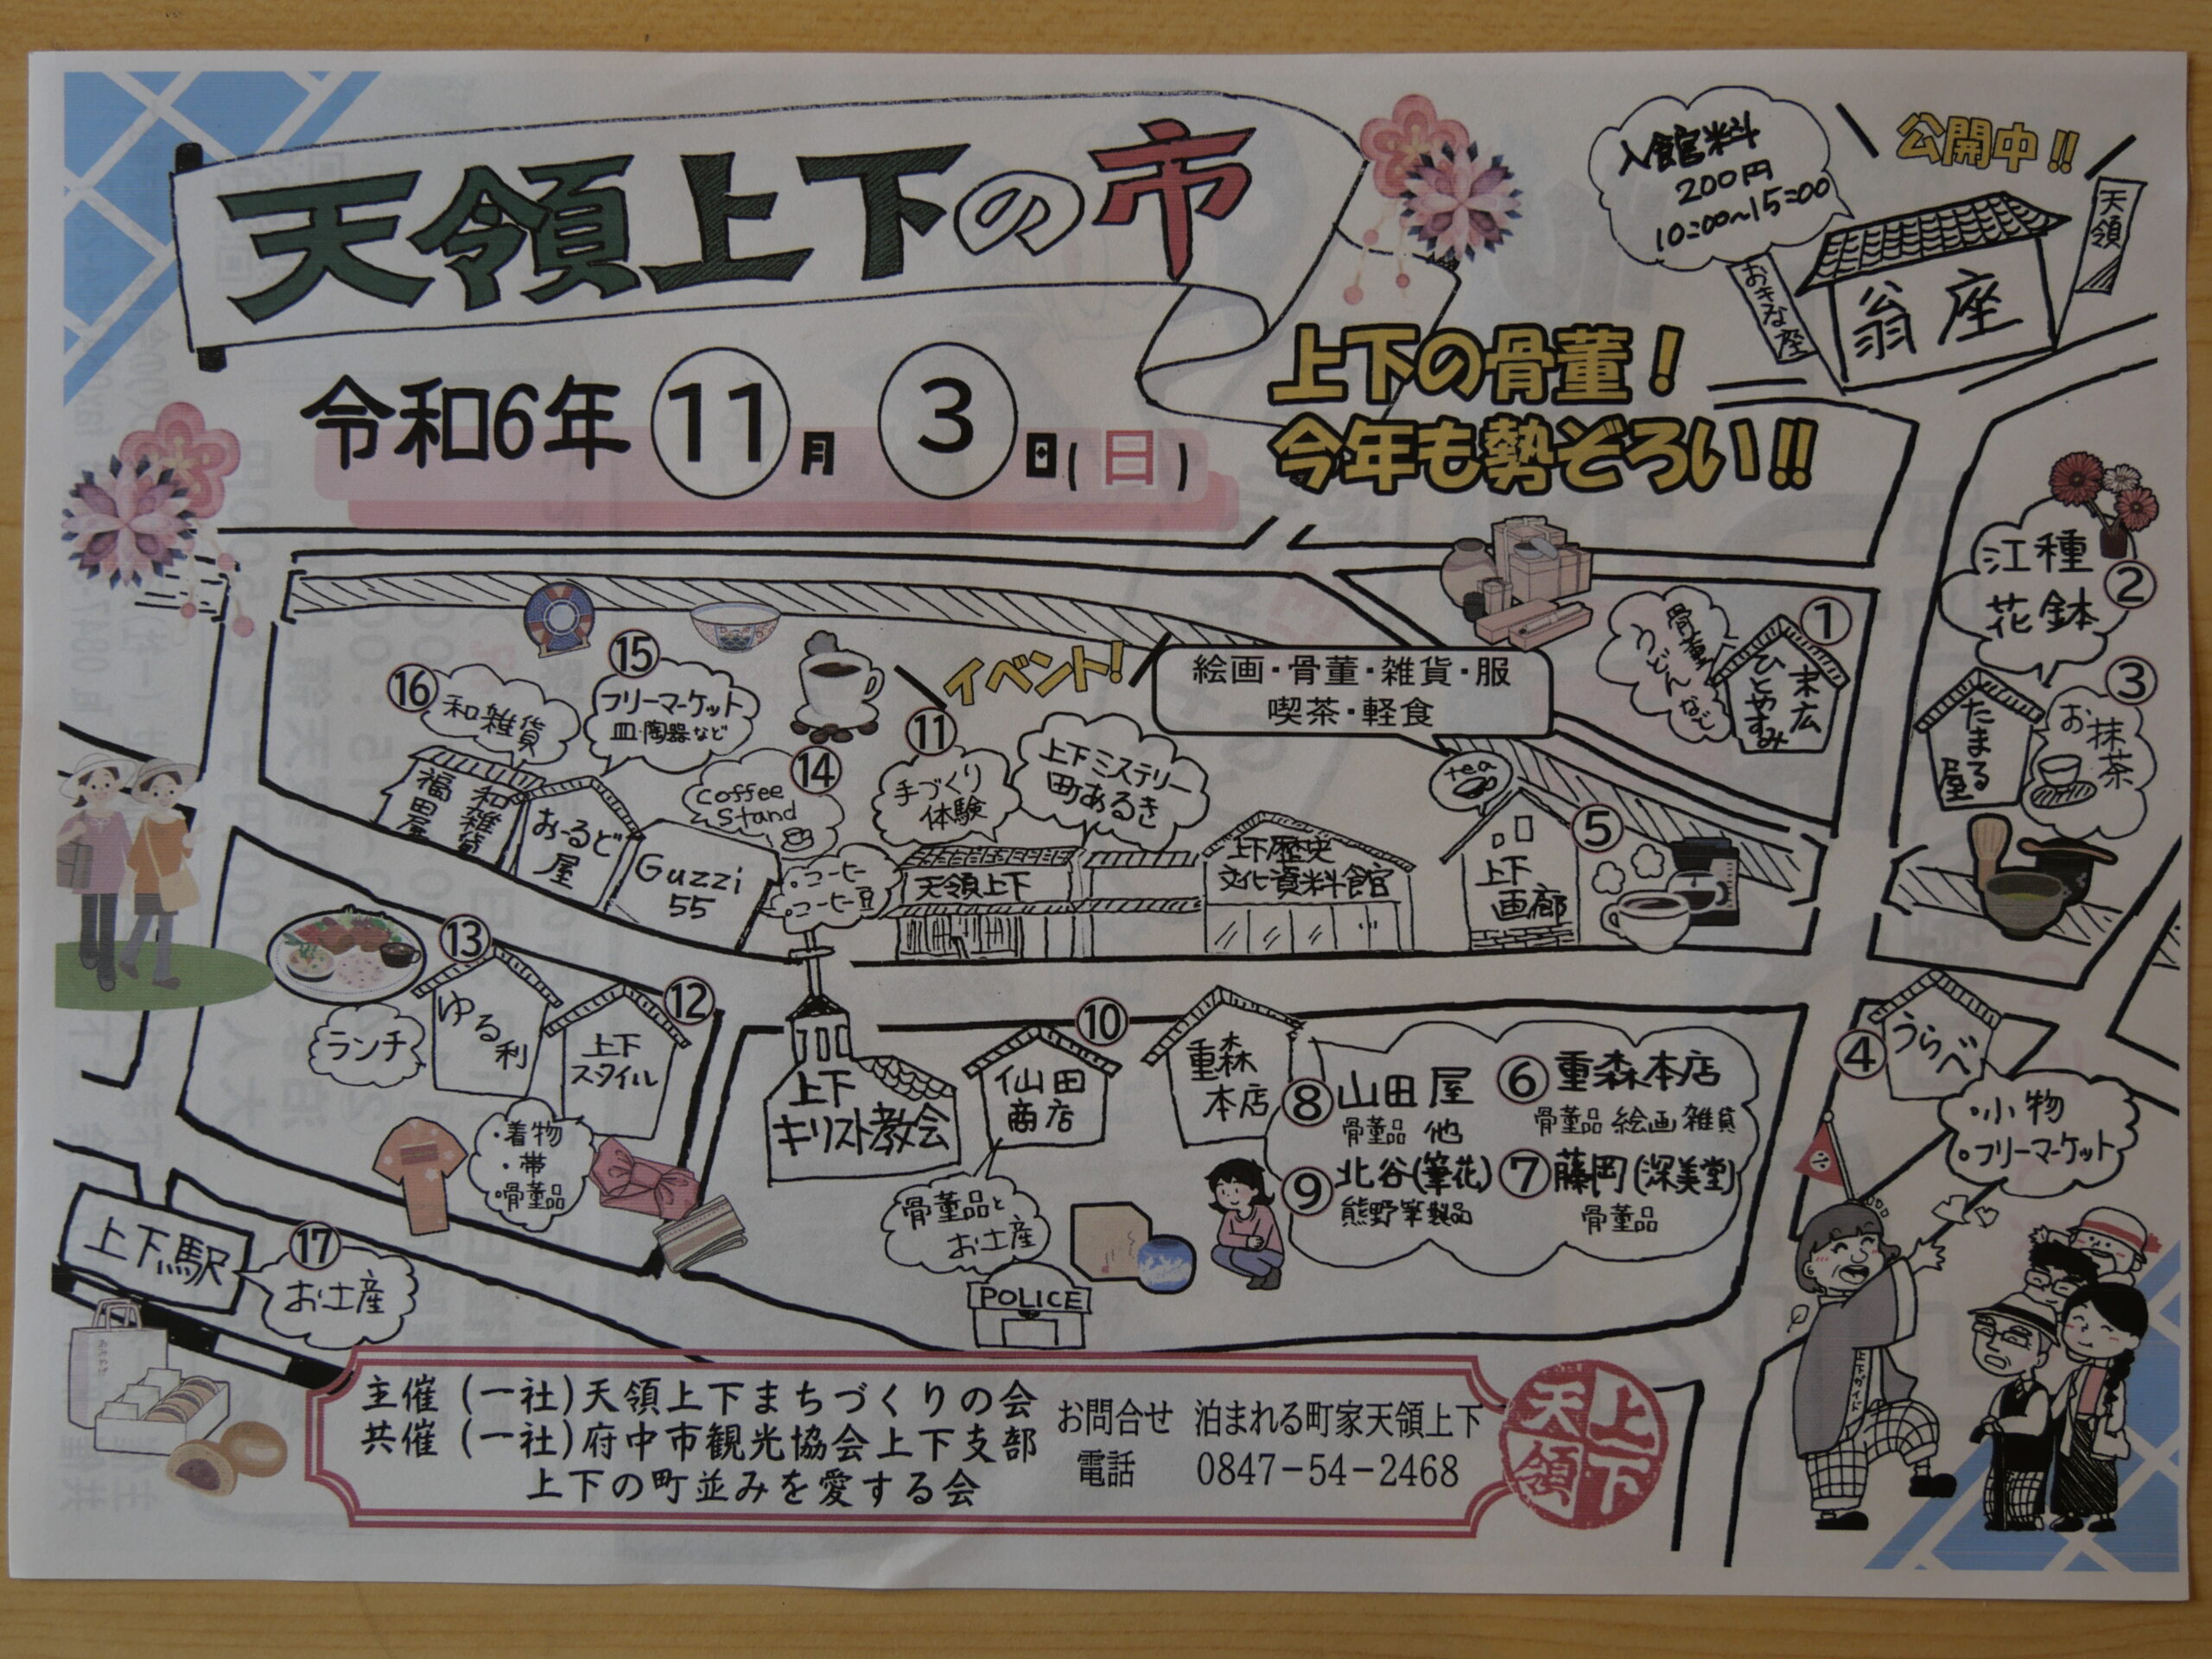 天領上下の市
令和6年 11月 3日(日)
入館料
200円
10:00~15:00
公開中!!
天領
おきな座
翁座
上下の骨董!
今年も勢ぞろい!!
①
末広
ひとやすみ
骨董
うどんなど
②
江種
花鉢
③
お抹茶
たまる
屋
イベント!
絵画・骨董・雑貨・服
喫茶・軽食
tea
⑤
上下
画廊
上下歴史
文化資料館
上下ミステリー
町あるき
⑪
手づくり
体験
天領上下
⑭
Coffee
Stand
・コーヒー
・コーヒー豆
Guzzi
55
⑮
フリーマーケット
皿・陶器など
おーるど
屋
⑯
和雑貨
和雑貨
福田屋
⑬
ゆる利
ランチ
⑫
上下
スタイル
・着物
・帯
・骨董品
上下
キリスト教会
⑩
仙田
商店
骨董品と
お土産
POLICE
重森
本店
⑥重森本店
骨董品 絵画 雑貨
⑦藤岡(深美堂)
骨董品
⑧山田屋
骨董品 他
⑨北谷(筆花)
熊野筆製品
④
うらべ
・小物
・フリーマーケット
上下ガイド
上下駅
⑰
お土産
主催 (一社)天領上下まちづくりの会
共催 (一社)府中市観光協会上下支部
上下の町並みを愛する会
お問合せ 泊まれる町家天領上下
電話 0847-54-2468
上下
天領